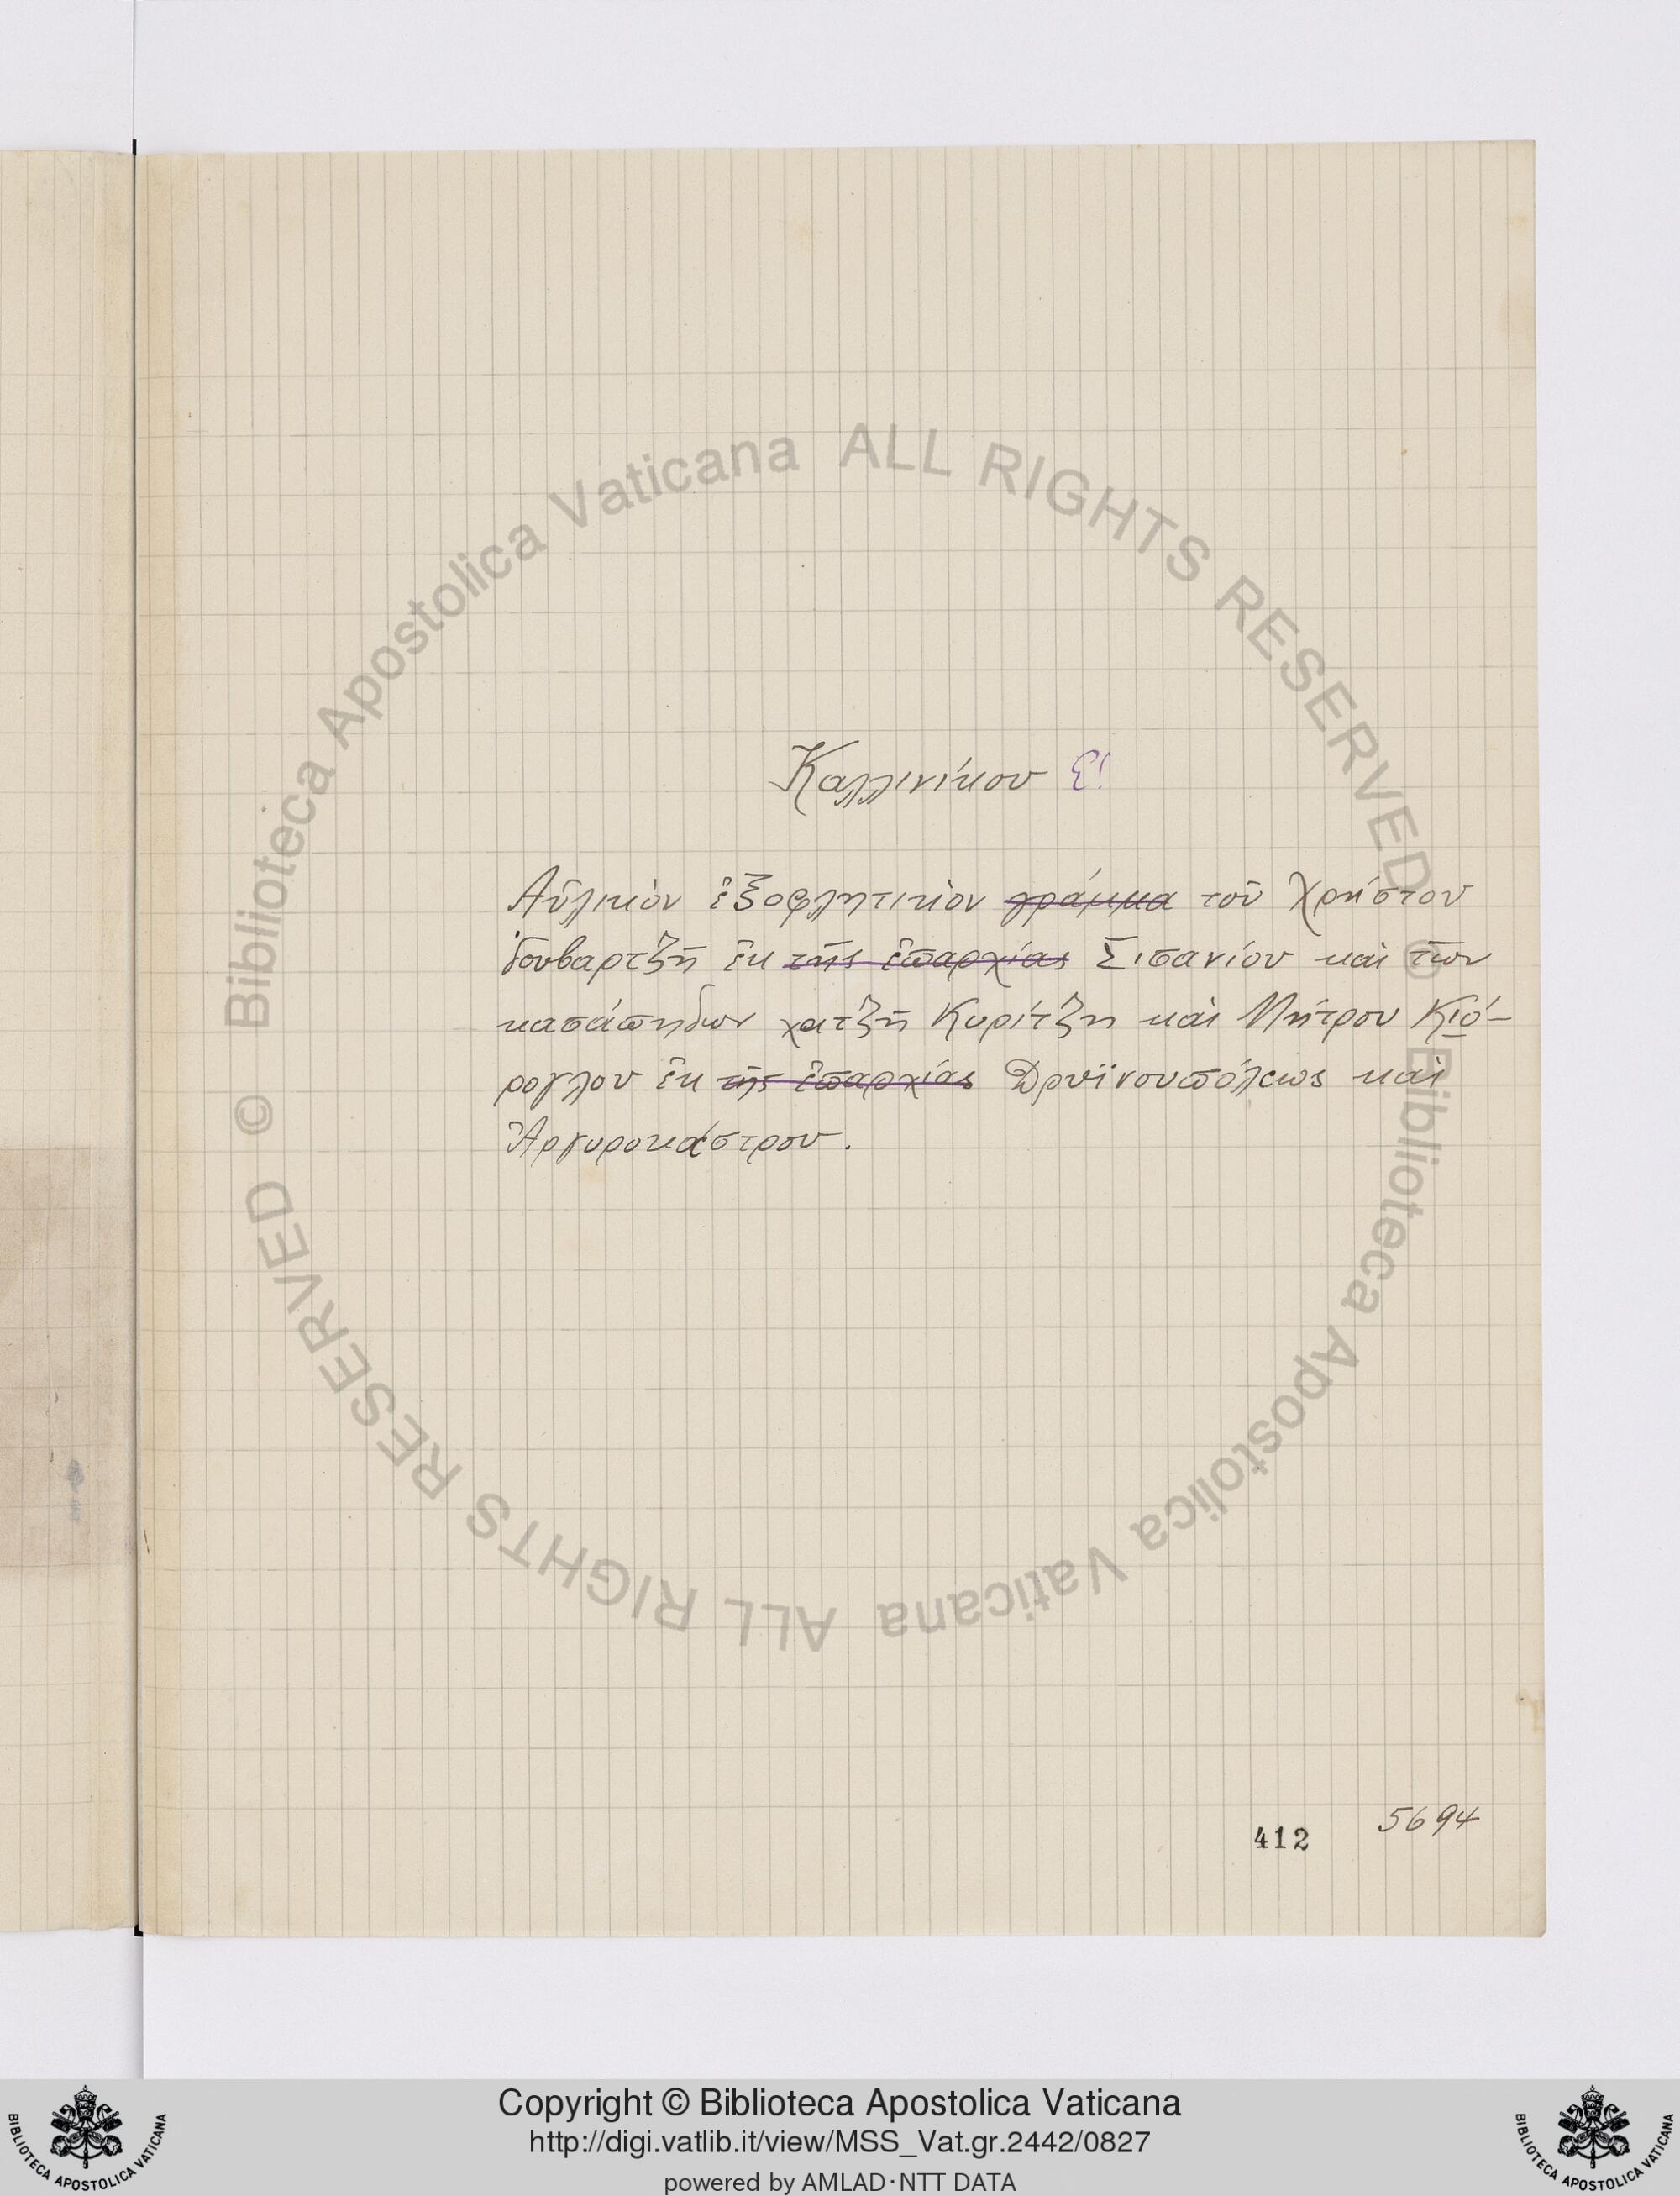 Καλλινίκου Ε!
Αὐλικὸν ἐξοφλητικὸν γράμμα τοῦ Χρήστου
δουβαρτζῆ ἐκ τῆς ἐπαρχίας Σισανίου καὶ τῶν
κασάπηδων χατζῆ Κυρίτζη καὶ Μήτρου Κιό-
ρογλου ἐκ τῆς ἐπαρχίας Δρυϊνουπόλεως καὶ
Ἀργυροκάστρου.
412 5694
© Biblioteca Apostolica Vaticana ALL RIGHTS RESERVED
© Biblioteca Apostolica Vaticana ALL RIGHTS RESERVED
Copyright © Biblioteca Apostolica Vaticana
http://digi.vatlib.it/view/MSS_Vat.gr.2442/0827
powered by AMLAD·NTT DATA
BIBLIOTECA APOSTOLICA VATICANA
BIBLIOTECA APOSTOLICA VATICANA